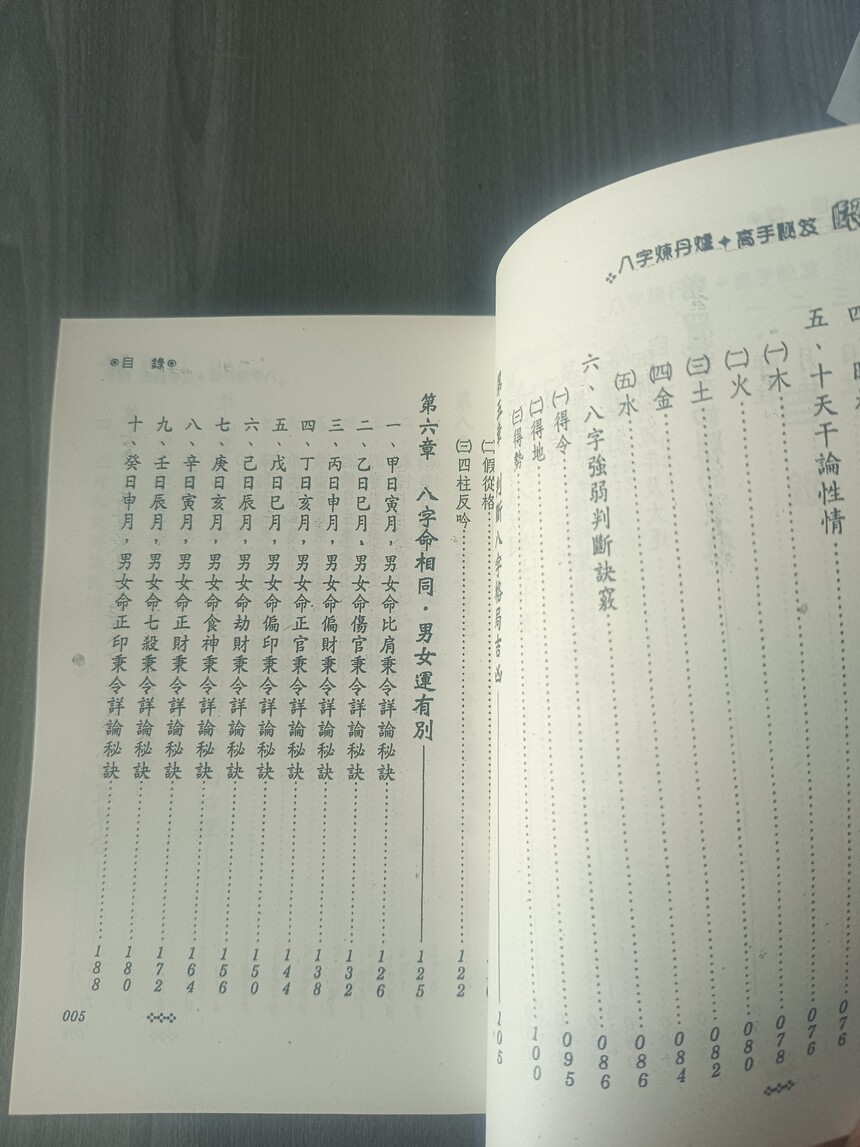 八字煉丹爐✦高手秘笈
四、
五、十天干論性情……076
㈠木……076
㈡火……078
㈢土……080
㈣金……082
㈤水……084
六、八字強弱判斷訣竅……086
㈠得令……086
㈡得地……095
㈢得勢……100
第五章 判斷八字格局吉凶——105
目 錄
㈡假從格……
㈢四柱反吟……122
第六章 八字命相同・男女運有別——125
一、甲日寅月,男女命比肩乘令詳論秘訣……126
二、乙日巳月、男女命傷官乘令詳論秘訣……132
三、丙日申月,男女命偏財乘令詳論秘訣……138
四、丁日亥月,男女命正官乘令詳論秘訣……144
五、戊日巳月,男女命偏印乘令詳論秘訣……150
六、己日辰月,男女命劫財乘令詳論秘訣……156
七、庚日亥月,男女命食神乘令詳論秘訣……164
八、辛日寅月,男女命正財乘令詳論秘訣……172
九、壬日辰月,男女命七殺乘令詳論秘訣……180
十、癸日申月,男女命正印乘令詳論秘訣……188
005